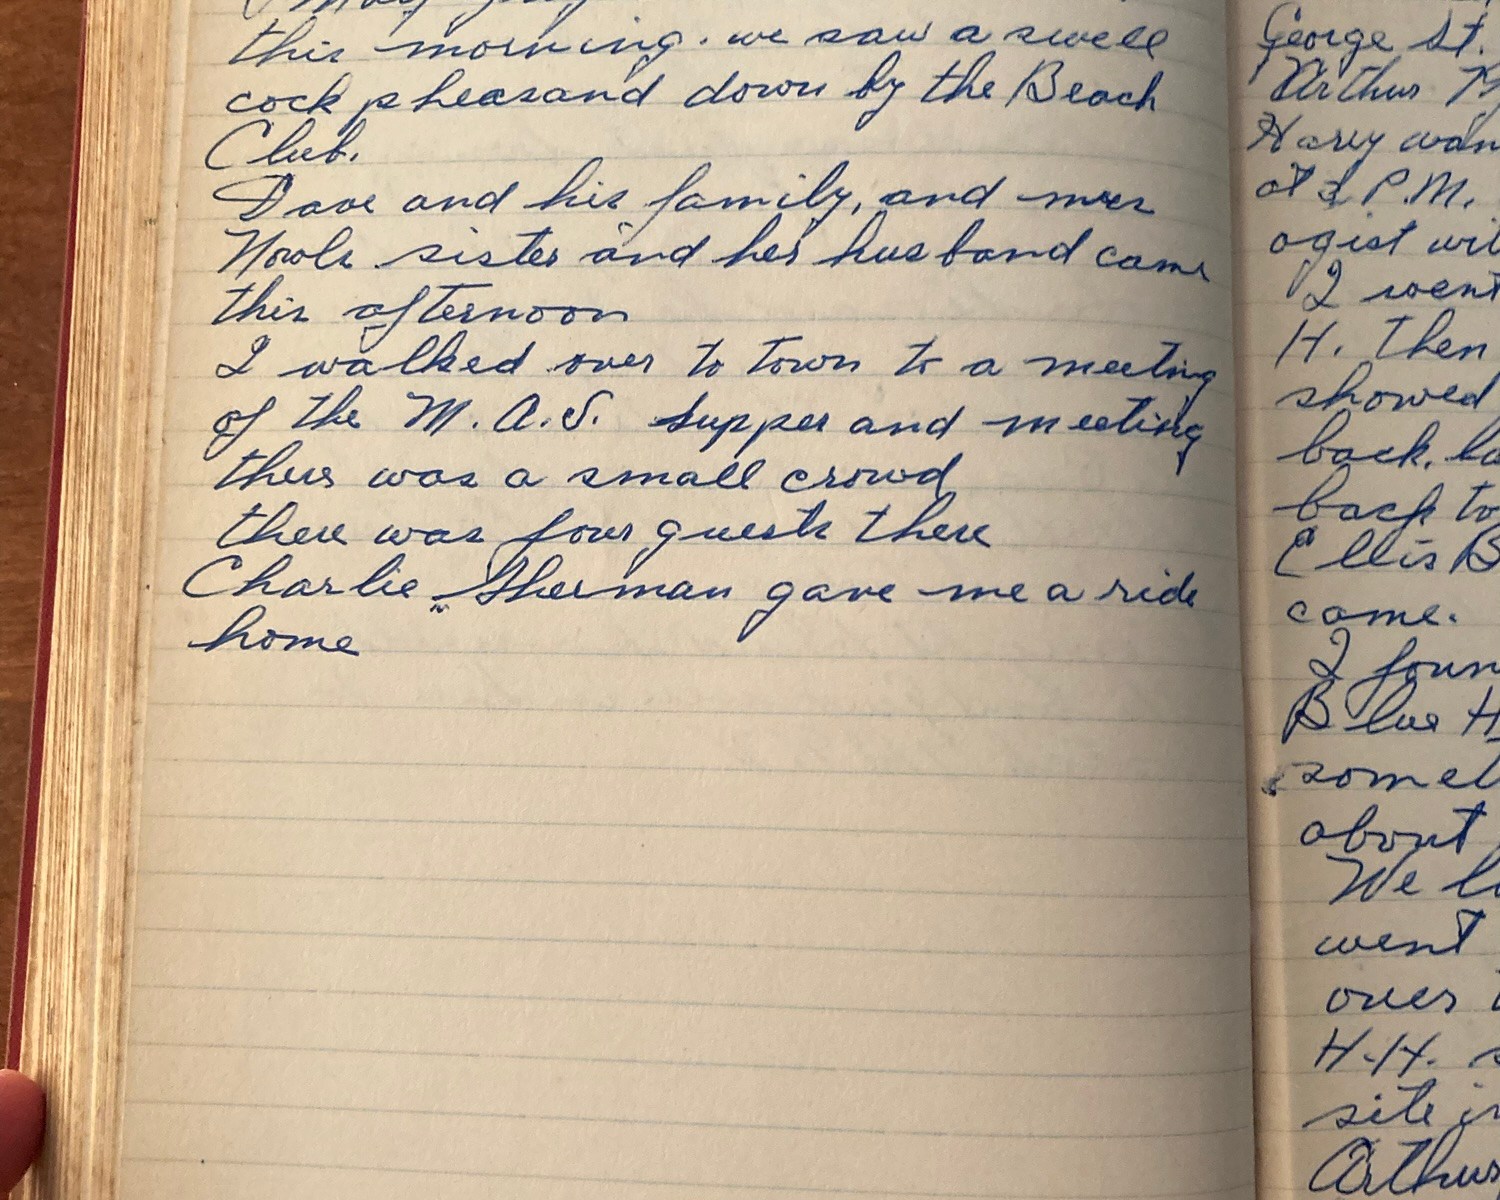 this morning. we saw a swell
cock pheasand down by the Beach
Club.
Dave and his family, and mrs
sister and her husband came
this afternoon
I walked over to town to a meeting
of the M.A.S. supper and meeting
there was a small crowd
there was four guests there
Charlie Sherman gave me a ride
home
George St.
Arthur
Harry
at 2 P.M.
ogist
I went
H. Then
showed
back.
back to
Ellis B
came.
I
Blue H
about
We
went
over
H.H.
site
Arthur